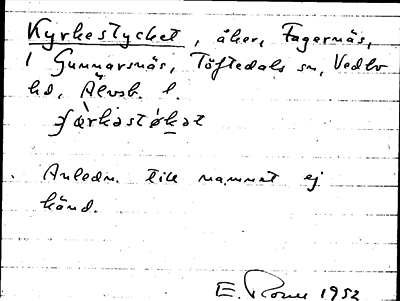 Kyrkestycket, åker, Fagernäs,
i Gunnarsnäs, Töftedals sn, Vedbo
hd, Älvsb. l.
Anledn. till namnet ej
känd.
E. 1952